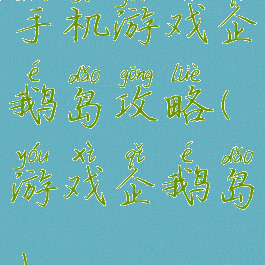 手机游戏企
é dǎo gōng lüè
鹅岛攻略(
yóu xì qǐ é dǎo
游戏企鹅岛
)